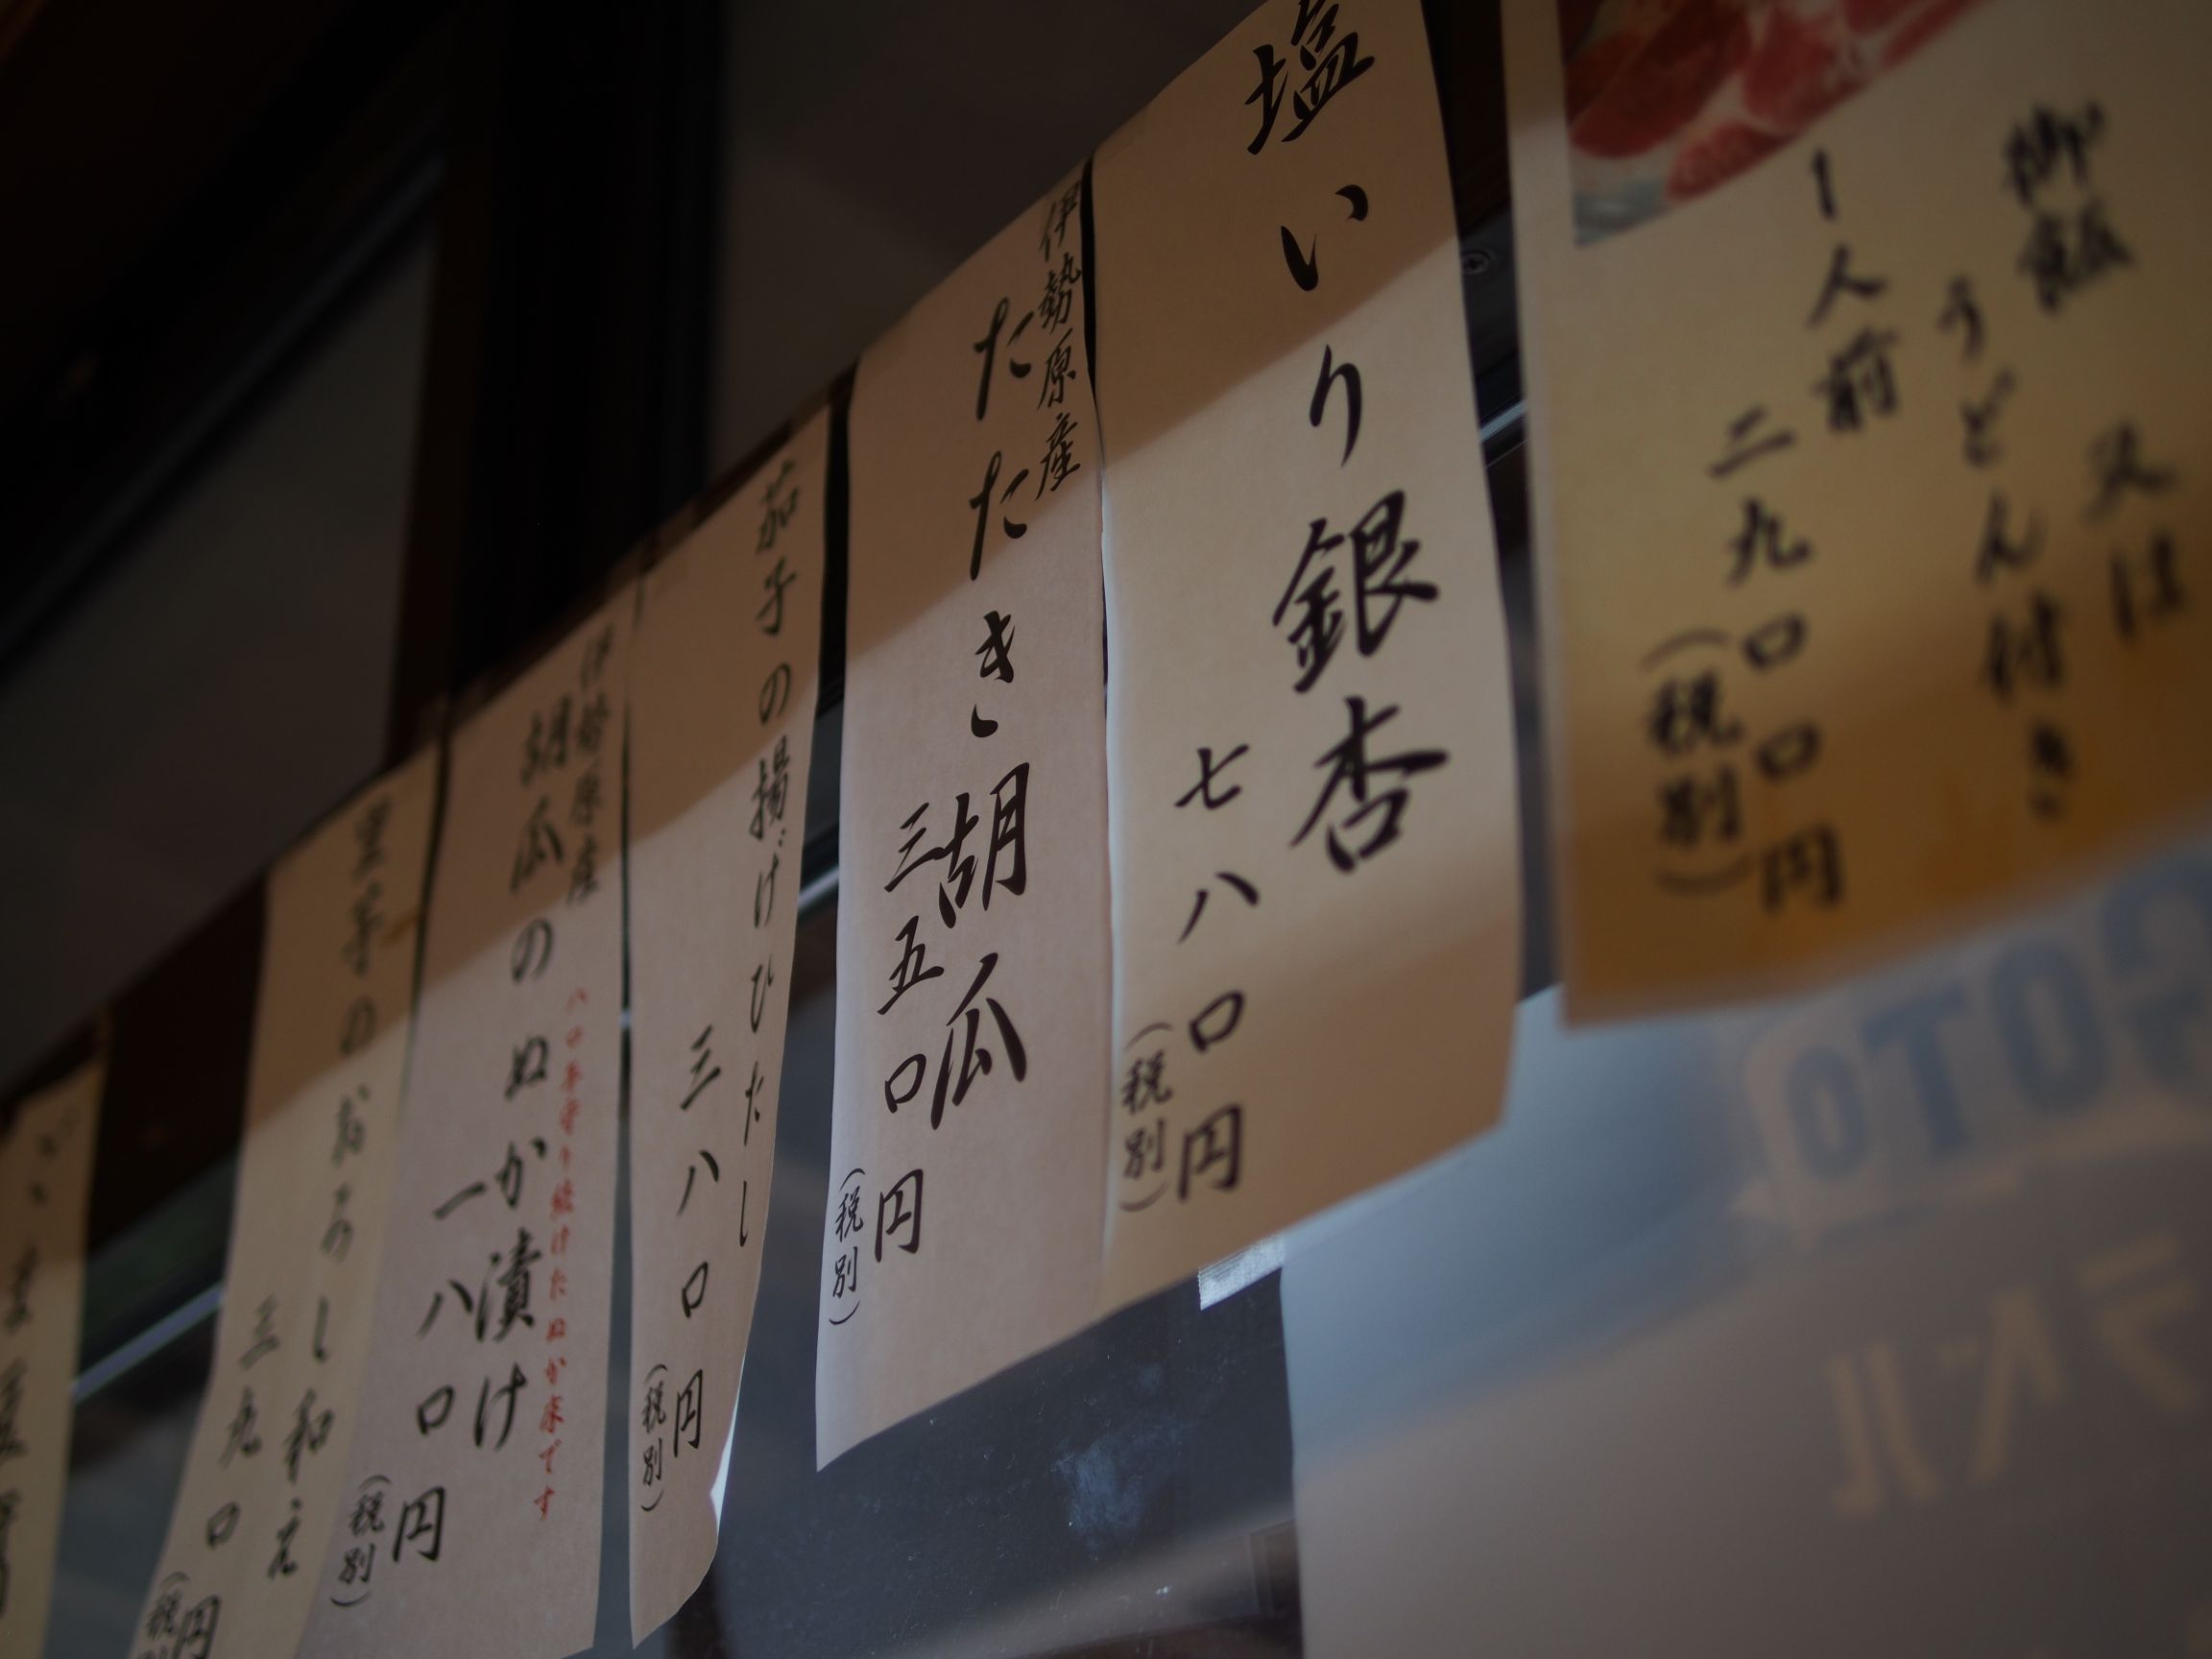 御飯 又は
うどん付き
1人前
二九〇〇円
（税別）
塩いり銀杏
七八〇円
（税別）
伊勢原産
たたき胡瓜
三五〇円
（税別）
茄子の揚げひたし
三八〇円
（税別）
伊勢原産
胡瓜のぬか漬け
八〇年守り続けたぬか床です
一八〇円
（税別）
里芋のおろし和え
三九〇円
（税別